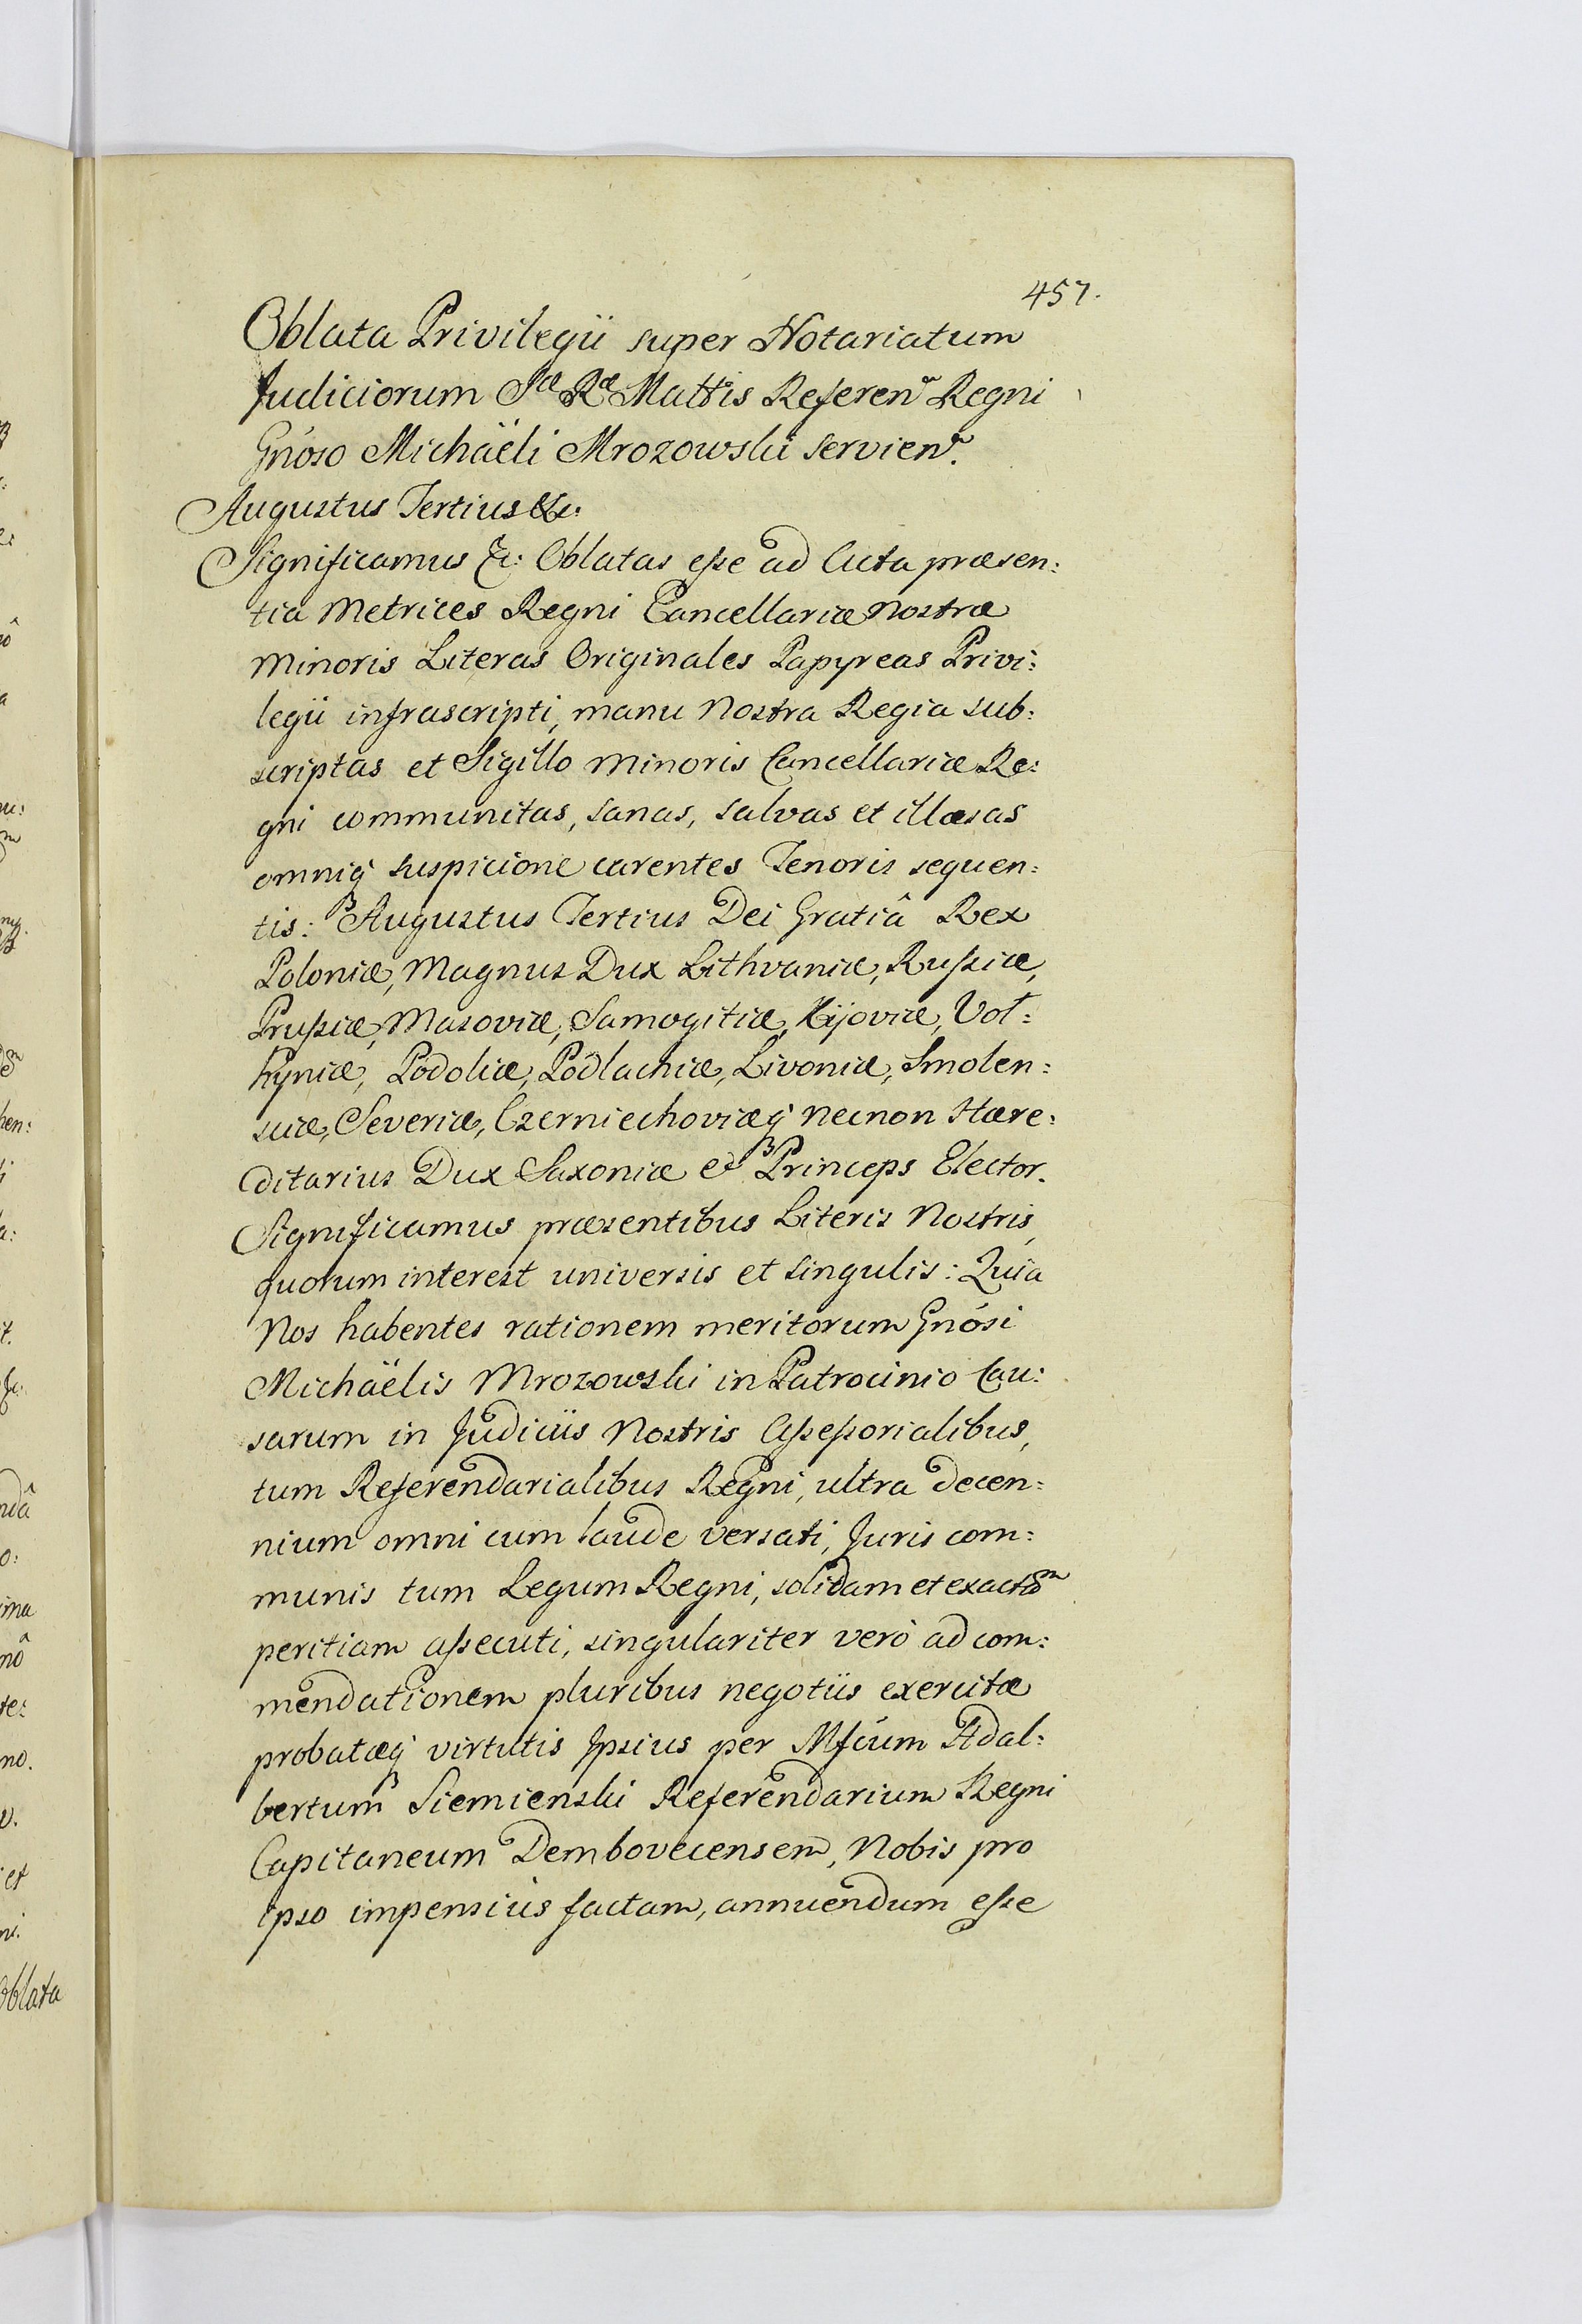 457.
Oblata Privilegii super Notariatum
Judiciorum Sæ Ræ Mattis Referen. Regni
Gnoso Michaëli Mrozowski servien.
Augustus Tertius &c:
Significamus &c: Oblatas esse ad Acta præsen:
tia Metrices Regni Cancellariæ Nostræ
Minoris Literas Originales Papyreas Privi:
legii infrascripti, manu Nostra Regia sub:
scriptas et Sigillo Minoris Cancellariæ Re:
gni communitas, sanas, salvas et illæsas
omniq suspicione carentes Tenoris sequen:
tis: Augustus Tertius Dei Gratiâ Rex
Poloniæ, Magnus Dux Lithvaniæ, Russiæ,
Prussiæ, Masoviæ, Samogitiæ, Kijoviæ, Vol:
hyniæ, Podoliæ, Podlachiæ, Livoniæ, Smolen:
sciæ, Severiæ, Czerniechoviæq necnon Hære:
ditarius Dux Saxoniæ et Princeps Elector.
Significamus præsentibus Literis Nostris,
quorum interest universis et singulis: Quia
Nos habentes rationem meritorum Gnósi
Michaëlis Mrozowski in Patrocinio Cau:
sarum in Judiciis Nostris Assessorialibus,
tum Referendarialibus Regni, ultra decen:
nium omni cum laude versati, Juris com:
munis tum Legum Regni, solidam et exactam
peritiam assecuti, singulariter verò ad com:
mendationem pluribus negotiis exercitæ
probatæq virtutis Ipsius per Mfcum Adal:
bertum Siemienski Referendarium Regni
Capitaneum Dembovecensem, Nobis pro
ipso impensiùs factam, annuendum esse
Oblata